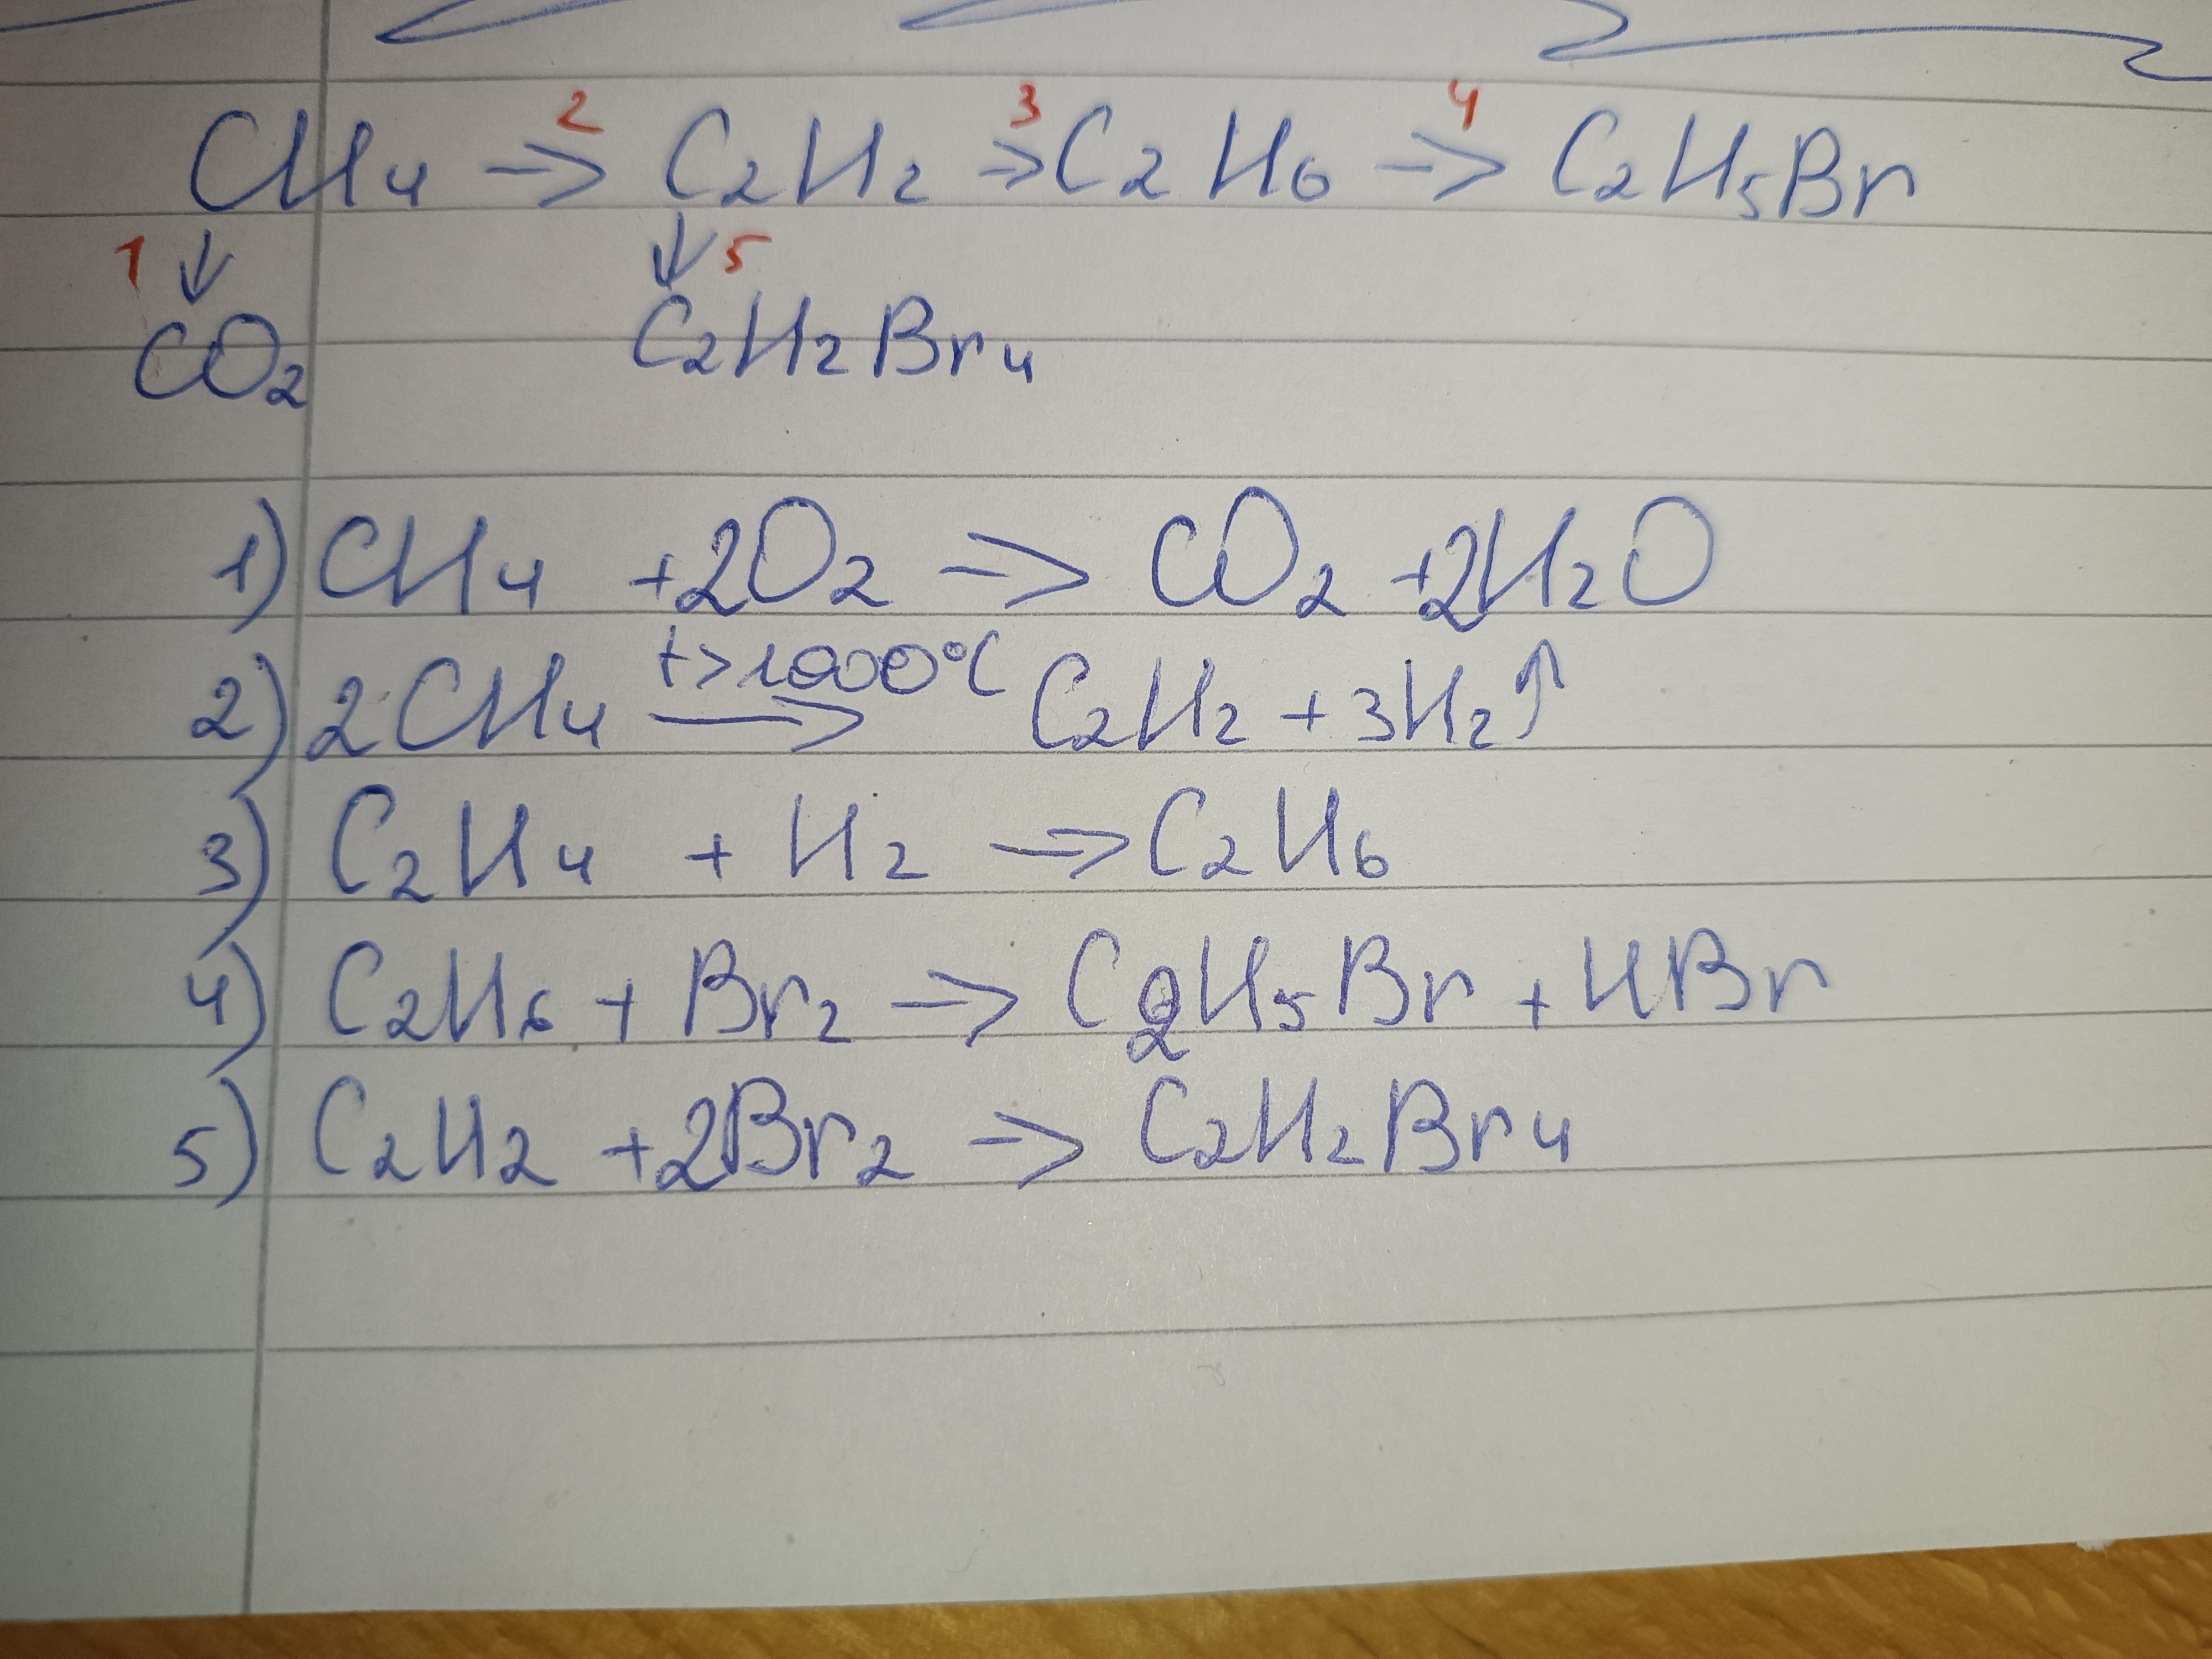 2 3 4
CH4 → C2H2 → C2H6 → C2H5Br
1 ↓ ↓ 5
CO2 C2H2Br4
1) CH4 + 2O2 → CO2 + 2H2O
t>1000°C
2) 2CH4 → C2H2 + 3H2↑
3) C2H4 + H2 → C2H6
4) C2H6 + Br2 → C2H5Br + HBr
5) C2H2 + 2Br2 → C2H2Br4